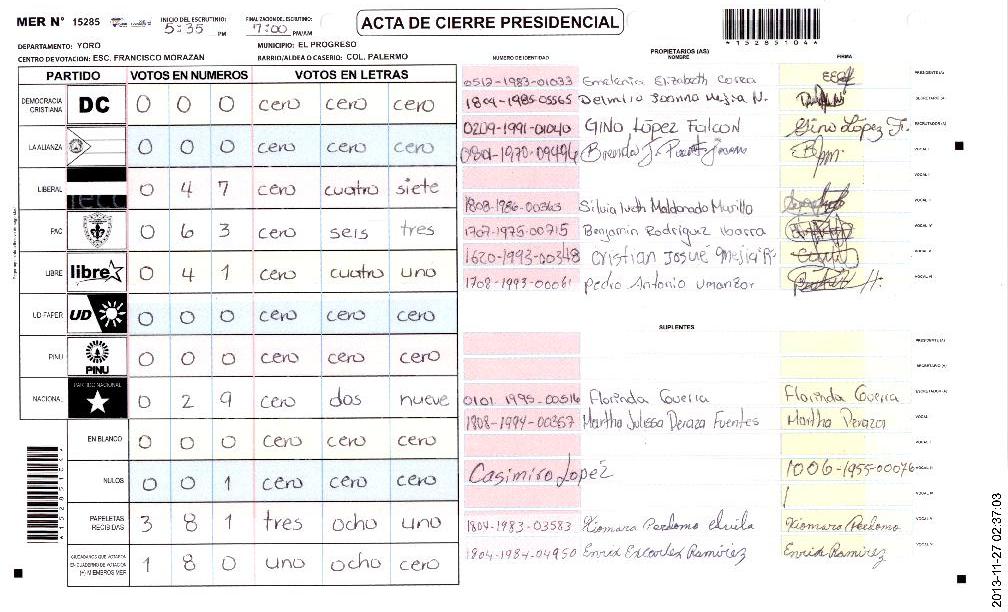 MER Nº 15285
INICIO DEL ESCRUTINIO:
5:35 PM
FINALIZACION DEL ESCRUTINIO:
7:00 PM/AM
ACTA DE CIERRE PRESIDENCIAL
*15285104*
DEPARTAMENTO: YORO
MUNICIPIO: EL PROGRESO
CENTRO DE VOTACION: ESC. FRANCISCO MORAZAN
BARRIO/ALDEA O CASERIO: COL. PALERMO
PARTIDO VOTOS EN NUMEROS VOTOS EN LETRAS
DEMOCRACIA CRISTIANA DC 0 0 0 cero cero cero
LA ALIANZA 0 0 0 cero cero cero
LIBERAL 0 4 7 cero cuatro siete
PAC 0 6 3 cero seis tres
LIBRE libre 0 4 1 cero cuatro uno
UD-FAPER UD 0 0 0 cero cero cero
PINU PINU 0 0 0 cero cero cero
NACIONAL PARTIDO NACIONAL 0 2 9 cero dos nueve
EN BLANCO 0 0 0 cero cero cero
NULOS 0 0 1 cero cero cero
PAPELETAS RECIBIDAS 3 8 1 tres ocho uno
CIUDADANOS QUE VOTARON EN CUADERNO DE VOTACION (+) MIEMBROS MER 1 8 0 uno ocho cero
PROPIETARIOS (AS)
NUMERO DE IDENTIDAD NOMBRE FIRMA
0512-1983-01033 Elizabeth Correa PRESIDENTE (A)
1804-1985-05565 SECRETARIO (A)
0209-1991-01040 GINO LÓPEZ FALCON Gino López F. ESCRUTADOR (A)
0801-1970-09496 Brenda J. VOCAL I
VOCAL II
1808-1986-00363 Silvia Iveth Maldonado Murillo
1707-1975-00715 Benjamin Rodriguez Ibarra
1620-1993-00348 Cristian Josué Mejia R.
1708-1993-00061 Pedro Antonio Umanzor
SUPLENTES
PRESIDENTE (A)
SECRETARIO (A)
0101 1995-00516 Florinda Guerra Florinda Guerra ESCRUTADOR (A)
1808-1994-00357 Martha Julissa Peraza Fuentes Martha Peraza
Casimiro Lopez 1006-1955-00076
1804-1983-03583 Xiomara Perdomo Xiomara Perdomo
1804-1984-04950 Ramirez Ramirez
2013-11-27 02:37:03